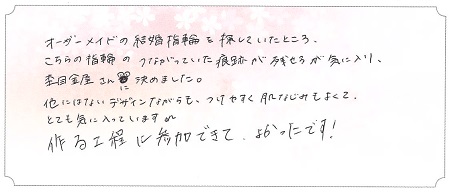 オーダーメイドの結婚指輪を探していたところ、
こちらの指輪のつながっていた痕跡が残せるが気に入り、
杢目金屋さんに決めました。
他にはないデザインながらも、つけやすく肌なじみもよくて、
とても気に入っています
作る工程に参加できて、よかったです!